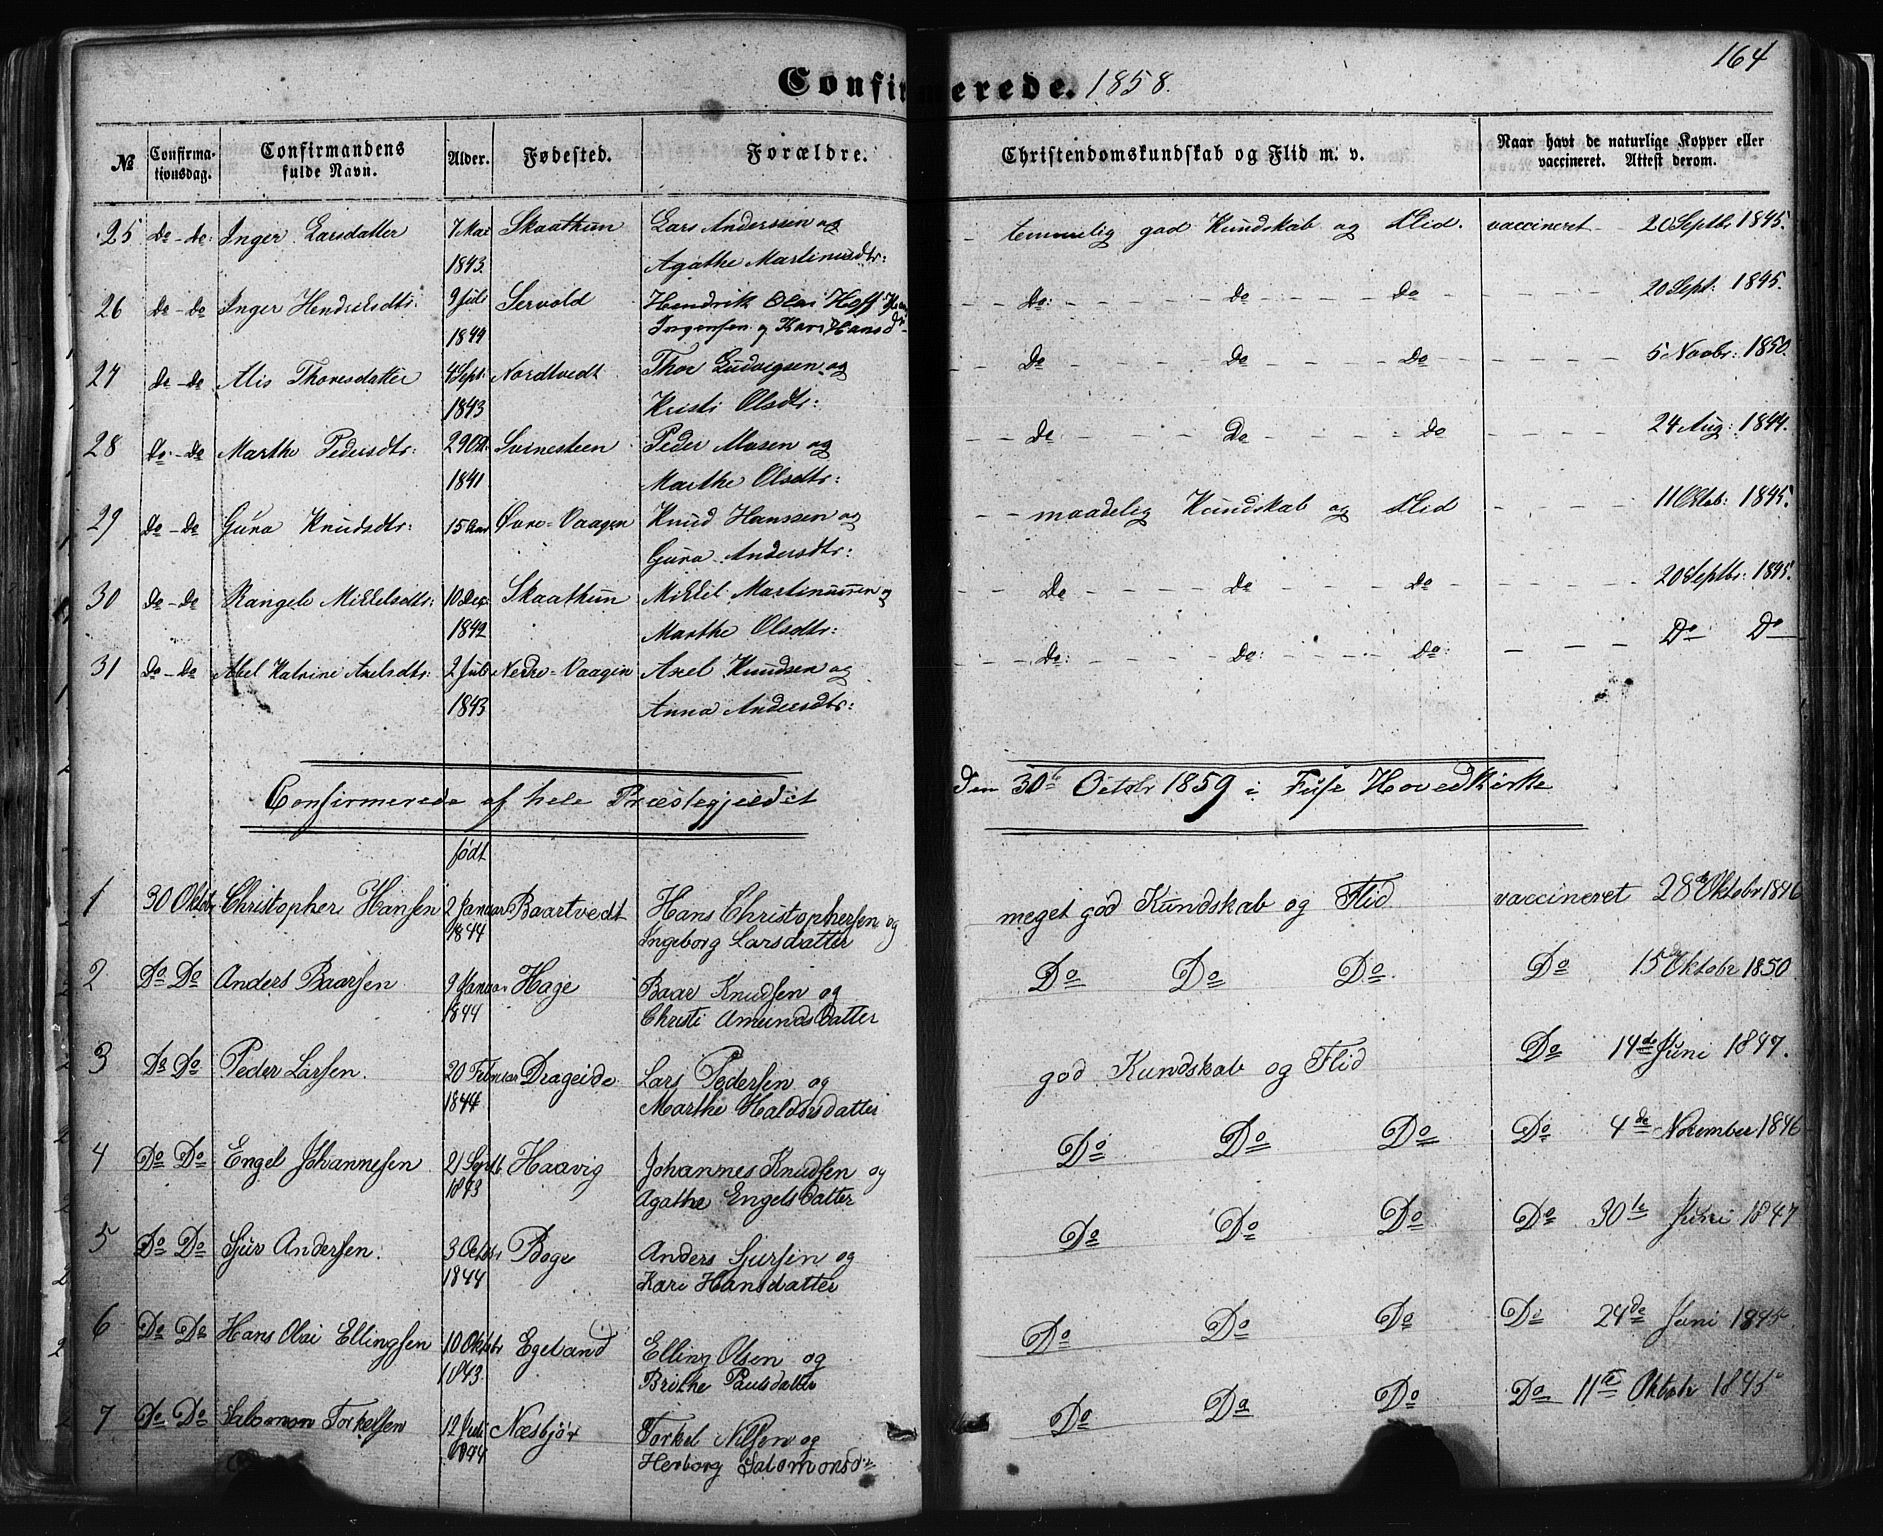 164
Confirmerede. 1858.
№ Confirmationsdag. Confirmandens fulde Navn. Alder. Fødested. Forældre. Christendomskundskab og Flid m. v. Naar havt de naturlige Kopper eller vaccineret. Attest derom.
25 do - do: Inger Larsdatter 7 Mai Skaathun Lars Anderssen og - - temmelig god Kundskab og Flid. vaccineret - 20 Septbr 1845.
1843. Agathe Martinusdtr:
26 do - do Inger Hendriksdtr: 9 Juli Servold Hendrik Olai Hoff - - do: - - - do - - - do - - - 20 Sept: 1845.
1844 Jørgensen og Kari Hansd
27 do - do Alis Thoresdatter 4 Sept: Nordtvedt Thor Ludvigsen og do - - - do - - - do - - - 5 Novbr: 1850.
1843 Kristi Olsdtr:
28 do - do Marthe Pedersdtr: 29 Okt: Svinesteen Peder Monsen og - - do - - - do - - - do - - - 24 Aug: 1844.
1841 Marthe Olsdtr:
29 do - do Gura Knudsdtr: 15 Øvre-Vaagen Knud Hanssen og - - - maadelig Kundskab og Flid - - - 11 Oktob: 1845.
Gura Andersdtr:
30 do - do Rangele Mikkelsdtr: 10 Dec: Skaathun Mikkel Martinussen og - - do - - - do - - - do - - - 20 Septbr: 1845.
1842 Marthe Olsdtr:
31 do - do Abel Katrine Axelsdtr: 2 Juli Nedre-Vaagen Axel Knudsen og - - do: - - - do: - - - do: - - - Do Do
1843 Anna Andersdtr:
Confirmerede af hele Præstegjeldet den 30te Octobr 1859 i Fuse Hovedkirke
født
1 30 Oktobr Christopher Hansen 2 Januar Baartvedt Hans Christophersen og meget god Kundskab og Flid vaccineret 28de Oktobr 1846
1844 Ingeborg Larsdatter
2 Do Do Anders Baarsen 9 Januar Hage Baar Knudsen og Do Do Do. Do 15de Oktobr 1850
1844 Christi Amundsdatter
3 Do Do Peder Larsen. 20 Februar Drageide Lars Pedersen og god Kundskab og Flid Do 14de Juni 1847.
1844 Marthe Haldorsdatter
4 Do Do Engel Johannesen 21 Septb Haavig Johannes Knudsen og Do Do Do Do 4de November 1846
1843 Agathe Engelsdatter
5 Do Do Sjur Andersen. 3 Octobr Boge Anders Sjursen og Do Do Do Do 30te Juni 1847
1844 Kari Hansdatter
6 Do Do Hans Olai Ellingsen 10 Oktobr Egeland Elling Olsen og Do Do Do Do 24de Juni 1845.
1843. Brithe Paulsdatter
7 Do Do Salomon Torkelsen 12 Juli Næsbjør Torkel Nilsen og Do Do Do Do 11te Oktobr 1845
1844 Herborg Salomonsd